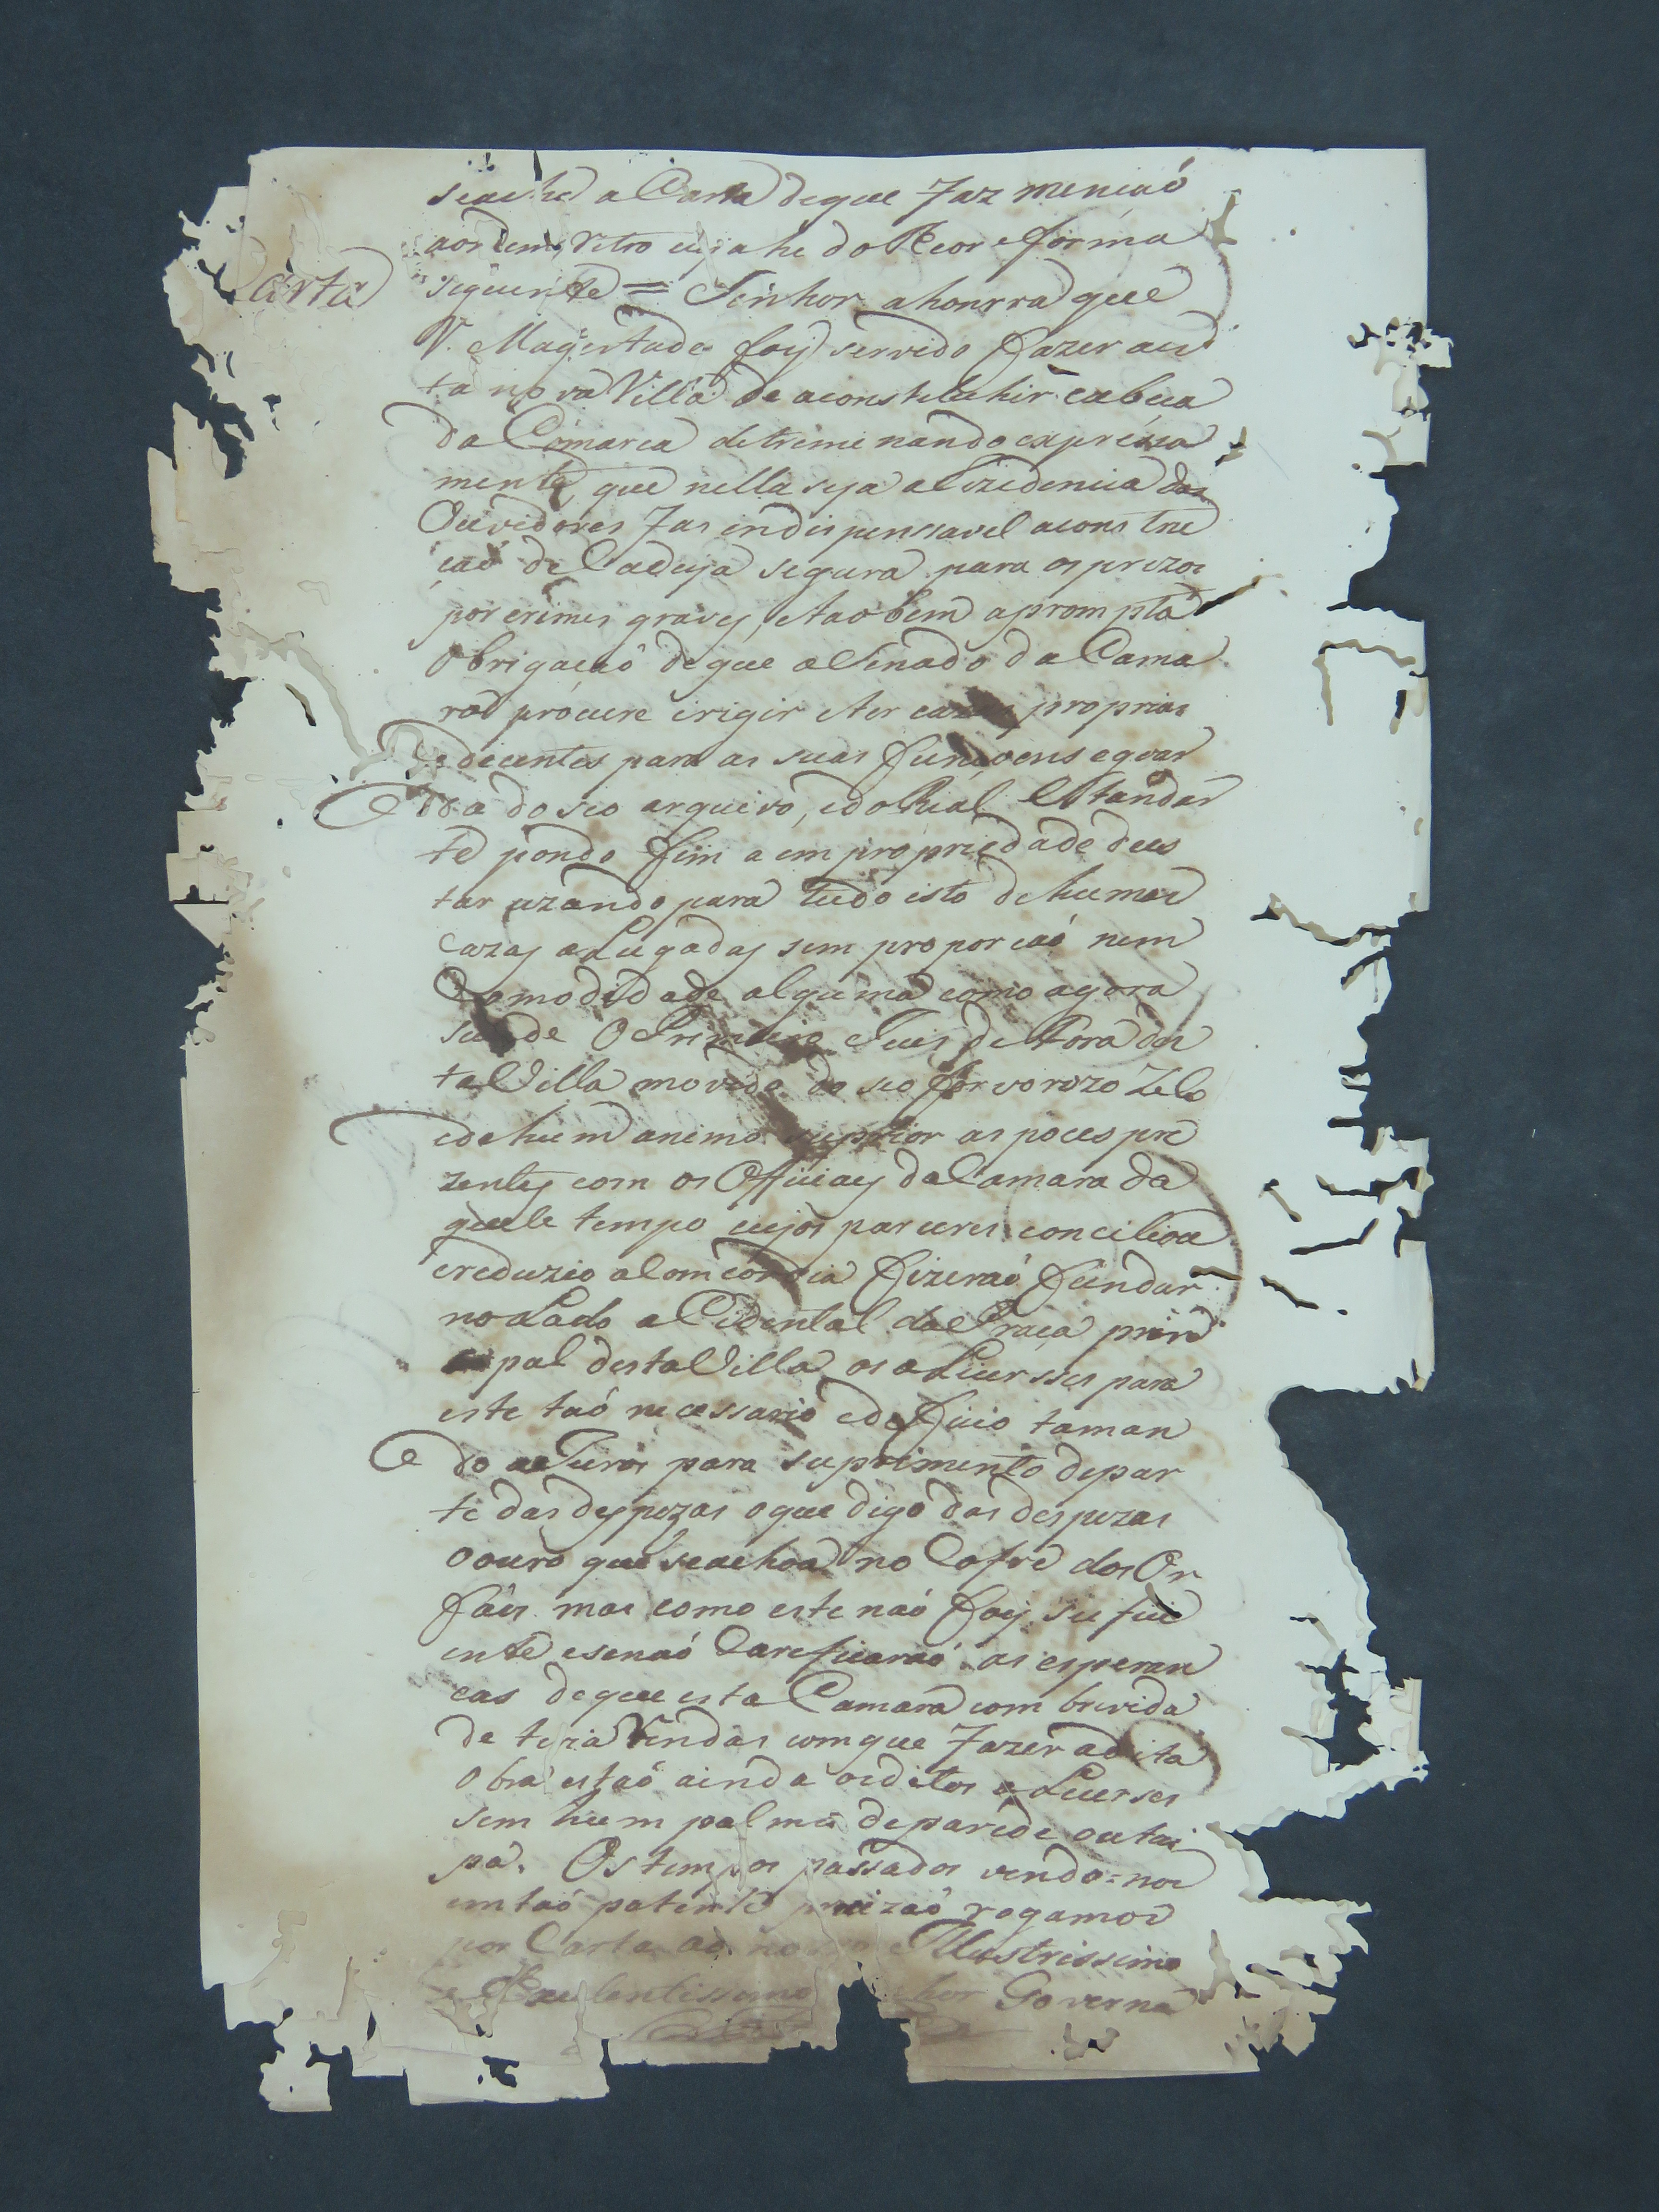 se ache a Carta de que Faz mençaó
aordem Retro cuja he do Reor e forma
Carta
siguente = Senhor ahonrra que
V. Magestade foy servido fazer aes
ta nova Villa de aconstetuhir cabeca
da Comarca detreminando expreça
mente, que nella seja a Rezidencia dos
Ouvidores Fas indispenssavel aconstru
çaó de Cadeya segura para os prezos
por crimes graves, etaobem aprompta
obrigaçaó de que o Senado da Cama
ra procure irigir eter cazas proprias
e decentes para as suas funçoens e goar
da do seo arqueivo, e do Rial Estandar
te pondo fim a empropriedade de es
tar uzando para tudo isto de humas
cazas aLugadas sem proporcaó nem
Comodidade alguma como agora
sucede O Primeiro Juis de Fora des
ta Villa movido do seo fervorozo Zelo
e de hum animo suprior as poces pre
zentes com os Officiaes da Camara da
quele tempo cujos pareceres conciliou
ereduzio a Comcordia fizeraó fundar
no Lado aCidental da Praça prin
cipal desta Villa os aLicersses para
este taó necessario edeficio taman
do a Juros para suprimento de par
te das despezas o que digo das despezas
o ouro que se achou no Cofre dos Or
faós mas como este naó foy sufici
ente e senaó Careficaraó as esperan
cas de que esta Camara com brevida
de teria Rendas com que Fazer a dita
obra estaó ainda os ditos aLicerses
sem hum palmo de parede ou tai
pa. Os tempos passados vendo=nos
em taó patente percizaó rogamos
por Carta ao nosso Illustrissimo
e Excelentissimo Senhor Governa